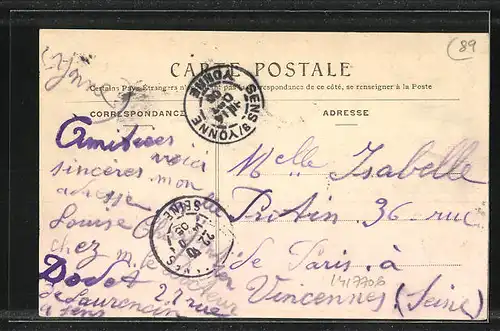 (89
(Yonne)
CARTE POSTALE
Certains Pays Étrangers n'acceptent pas de correspondance de ce côté, se renseigner à la Poste
CORRESPONDANCE
ADRESSE
SENS S/YONNE
YONNE
Amitiées
voici
sincères mon
adresse
Louise
chez m. le docteur
Dodet
21 rue
de Laurencin
à Sens
SEINE
Melle Isabelle
Protin 36 rue
de Paris à
Vincennes (Seine)